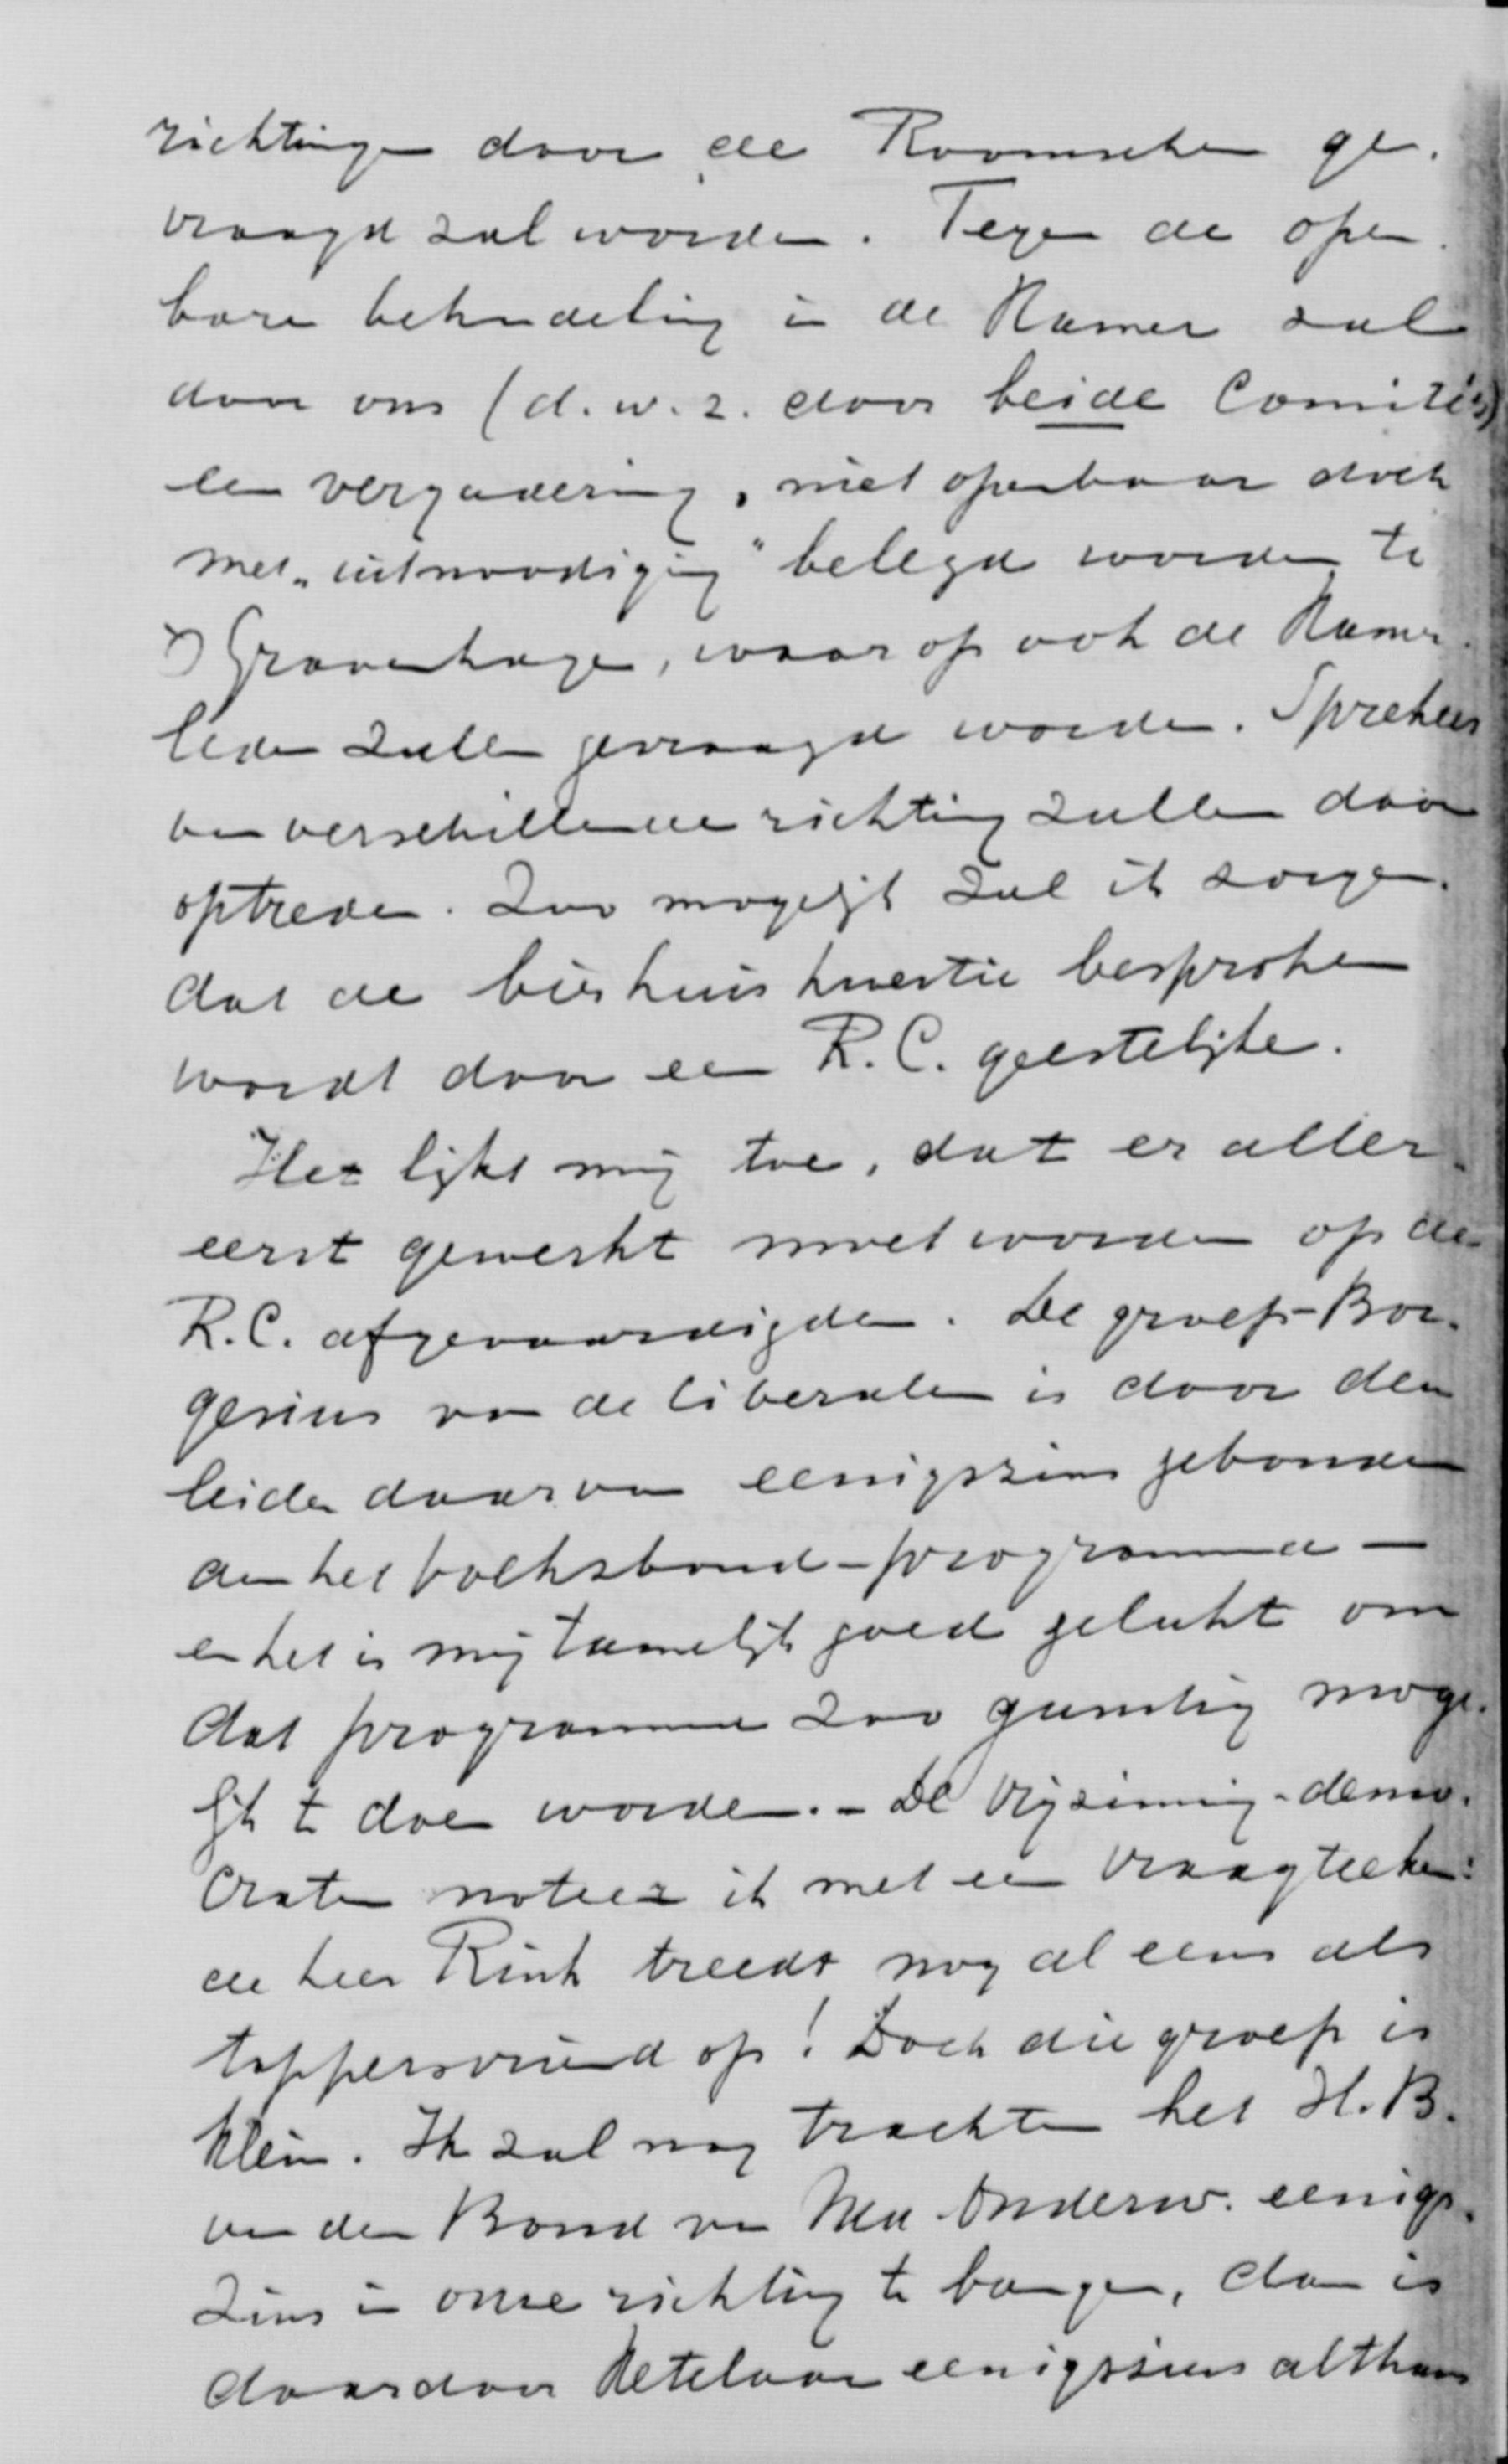 richtingen door de Roomschen ge-
vraagd zal worden. Tegen de open-
bare behandeling in de Kamer zal
door ons (d.w.z. door beide Comité's)
een vergadering, niet openbaar doch
met "uitnoodiging" belegd worden te
's Gravenhage, waarop ook de Kamer-
leden zullen gevraagd worden. Sprekers
van verschillende richting zullen daar
optreden. Zoo mogelijk zal ik zorgen
dat de bierhuiskwestie besproken
wordt door een R.C. geestelijke.
Het lijkt mij toe, dat er aller-
eerst gewerkt moet worden op de
R.C. afgevaardigden. De groep-Bor-
gesius van de liberalen is door den
leider daarvan eenigszins gebonden
aan het Volksbond-programma —
en het is mij tamelijk goed gelukt om
dat programma zoo gunstig moge-
lijk te doen worden. - De Vrijzinnig-demo-
craten noteer ik met een vraagteeken:
de heer Rink treedt nog al eens als
tappersvriend op! Doch die groep is
klein. Ik zal nog trachten het H.B.
van den Bond van Ned. Onderw. eenigs-
zins in onze richting te bangen, dan is
daardoor Ketelaar eenigszins althans